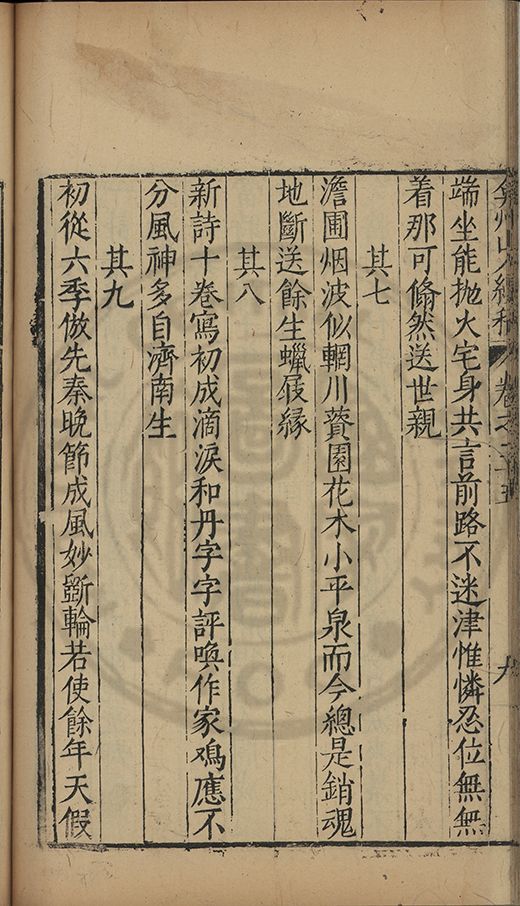 弇州山人續稿 卷之二十五 九
端坐能抛火宅身共言前路不迷津惟憐忍位無無
着那可翛然送世親
其七
澹圃烟波似輞川薋園花木小平泉而今總是銷魂
地斷送餘生蠟屐緣
其八
新詩十卷寫初成滴淚和丹字字評喚作家鳮應不
分風神多自濟南生
其九
初從六季倣先秦晚節成風妙斵輪若使餘年天假